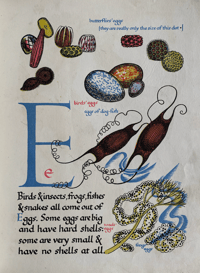 butterflies' eggs
(they are really only the size of this dot •)
birds' eggs
eggs of dog fish
E
e
Birds & insects, frogs, fishes
& snakes all come out of
Eggs. Some eggs are big
and have hard shells:
some are very small &
have no shells at all.